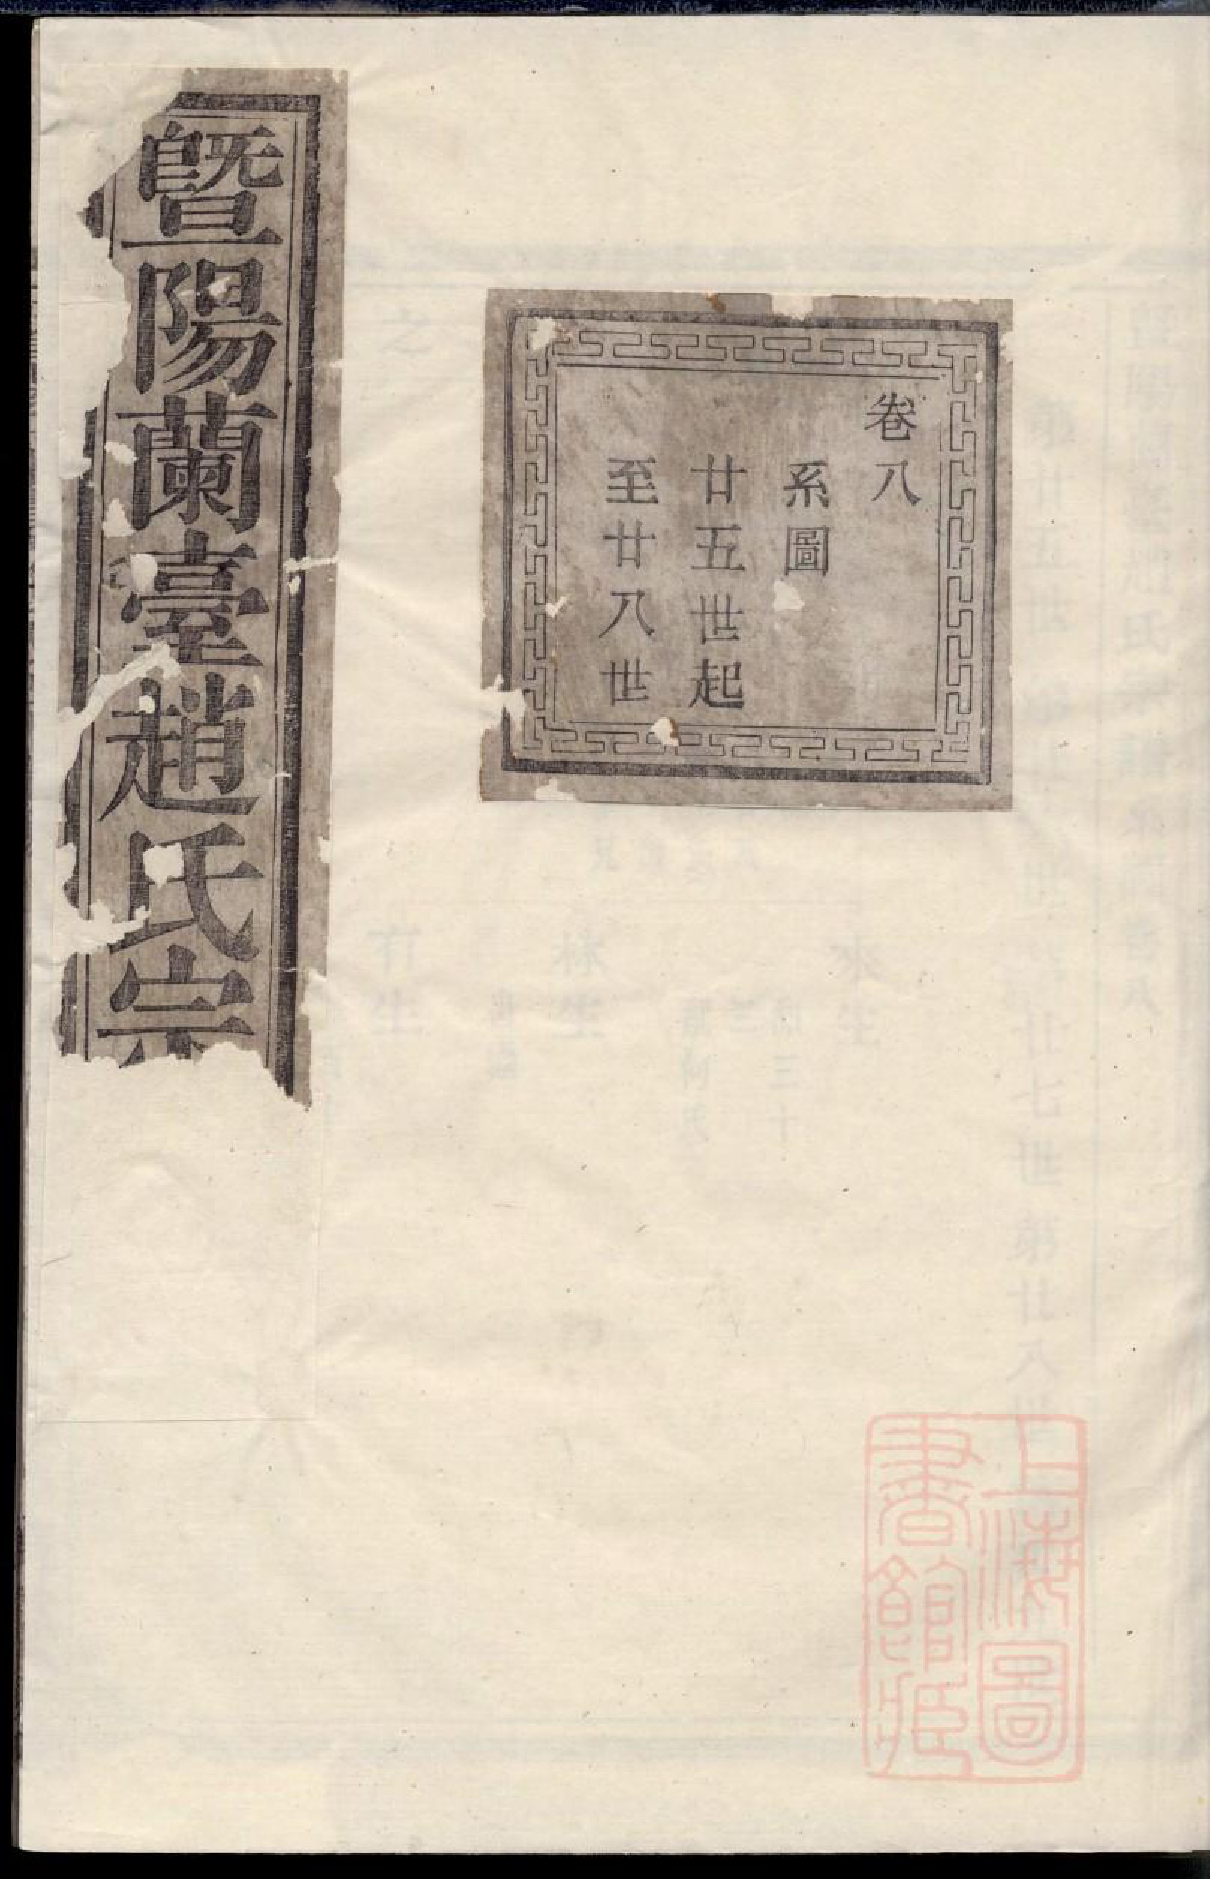 暨陽蘭臺趙氏宗
卷八
系圖
廿五世起
至廿八世
上海圖
書館藏